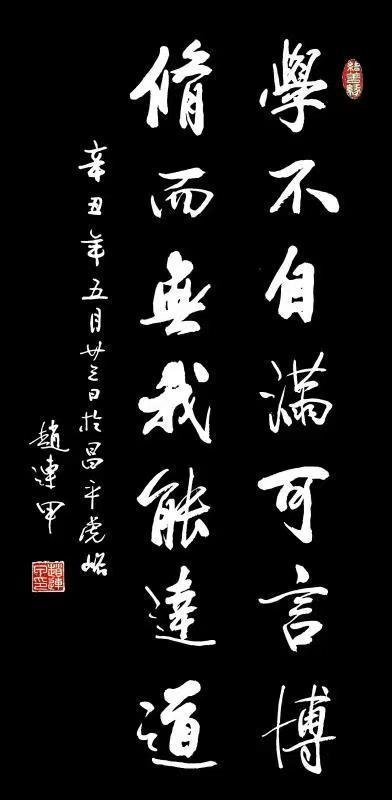 學不自滿可言博
脩而無我能達道
辛丑年五月廿三日於昌平虎峪
趙連甲